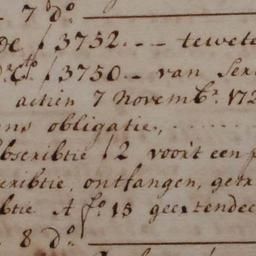 7 d.o
de ƒ 3752.-- tewete
ƒ 3750.- van Ser
actien 7 Novemb.r 172
ens obligatie,
bscribtie ƒ 2 voor't een
cribtie, ontfangen, getr
btie A f.o 13 geextendee
8 d.o